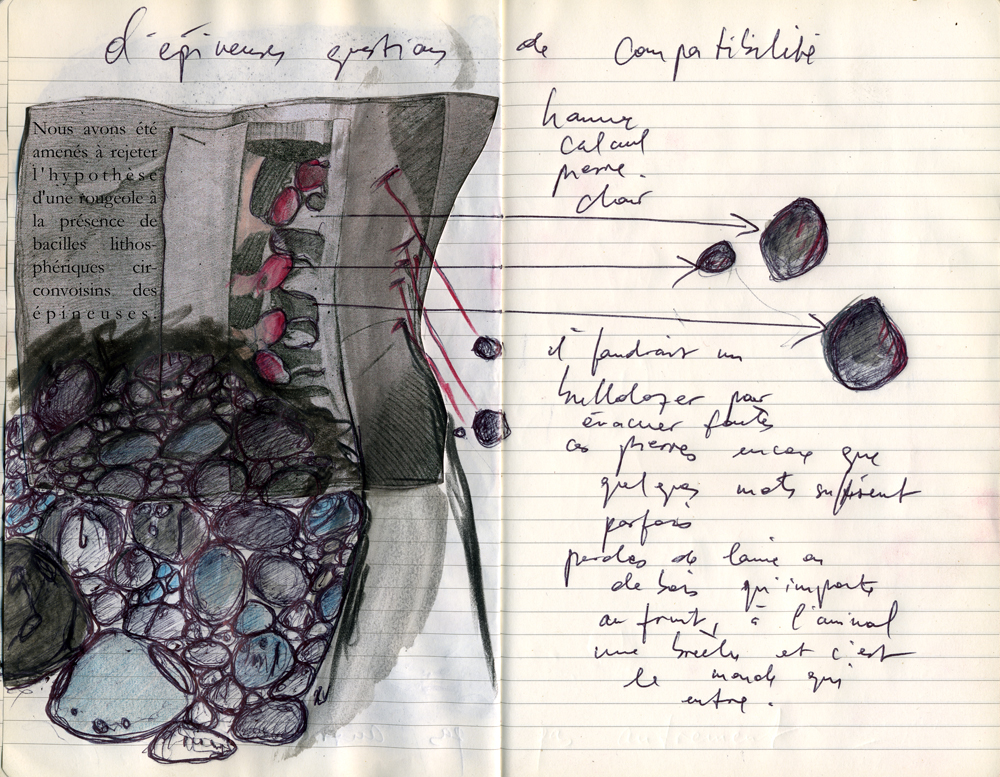 d'épineuses questions de compatibilité
Nous avons été
amenés à rejeter
l'hypothèse
d'une rougeole à
la présence de
bacilles lithos-
phériques cir-
convoisins des
épineuses.
calcul
pierre.
chair
il faudrait un
bulldozer pour
évacuer toutes
ces pierres encore que
quelques mots suffisent
parfois
paroles de laine ou
de bois qu'importe
au fruit, à l'animal
une brèche et c'est
le monde qui
entre.